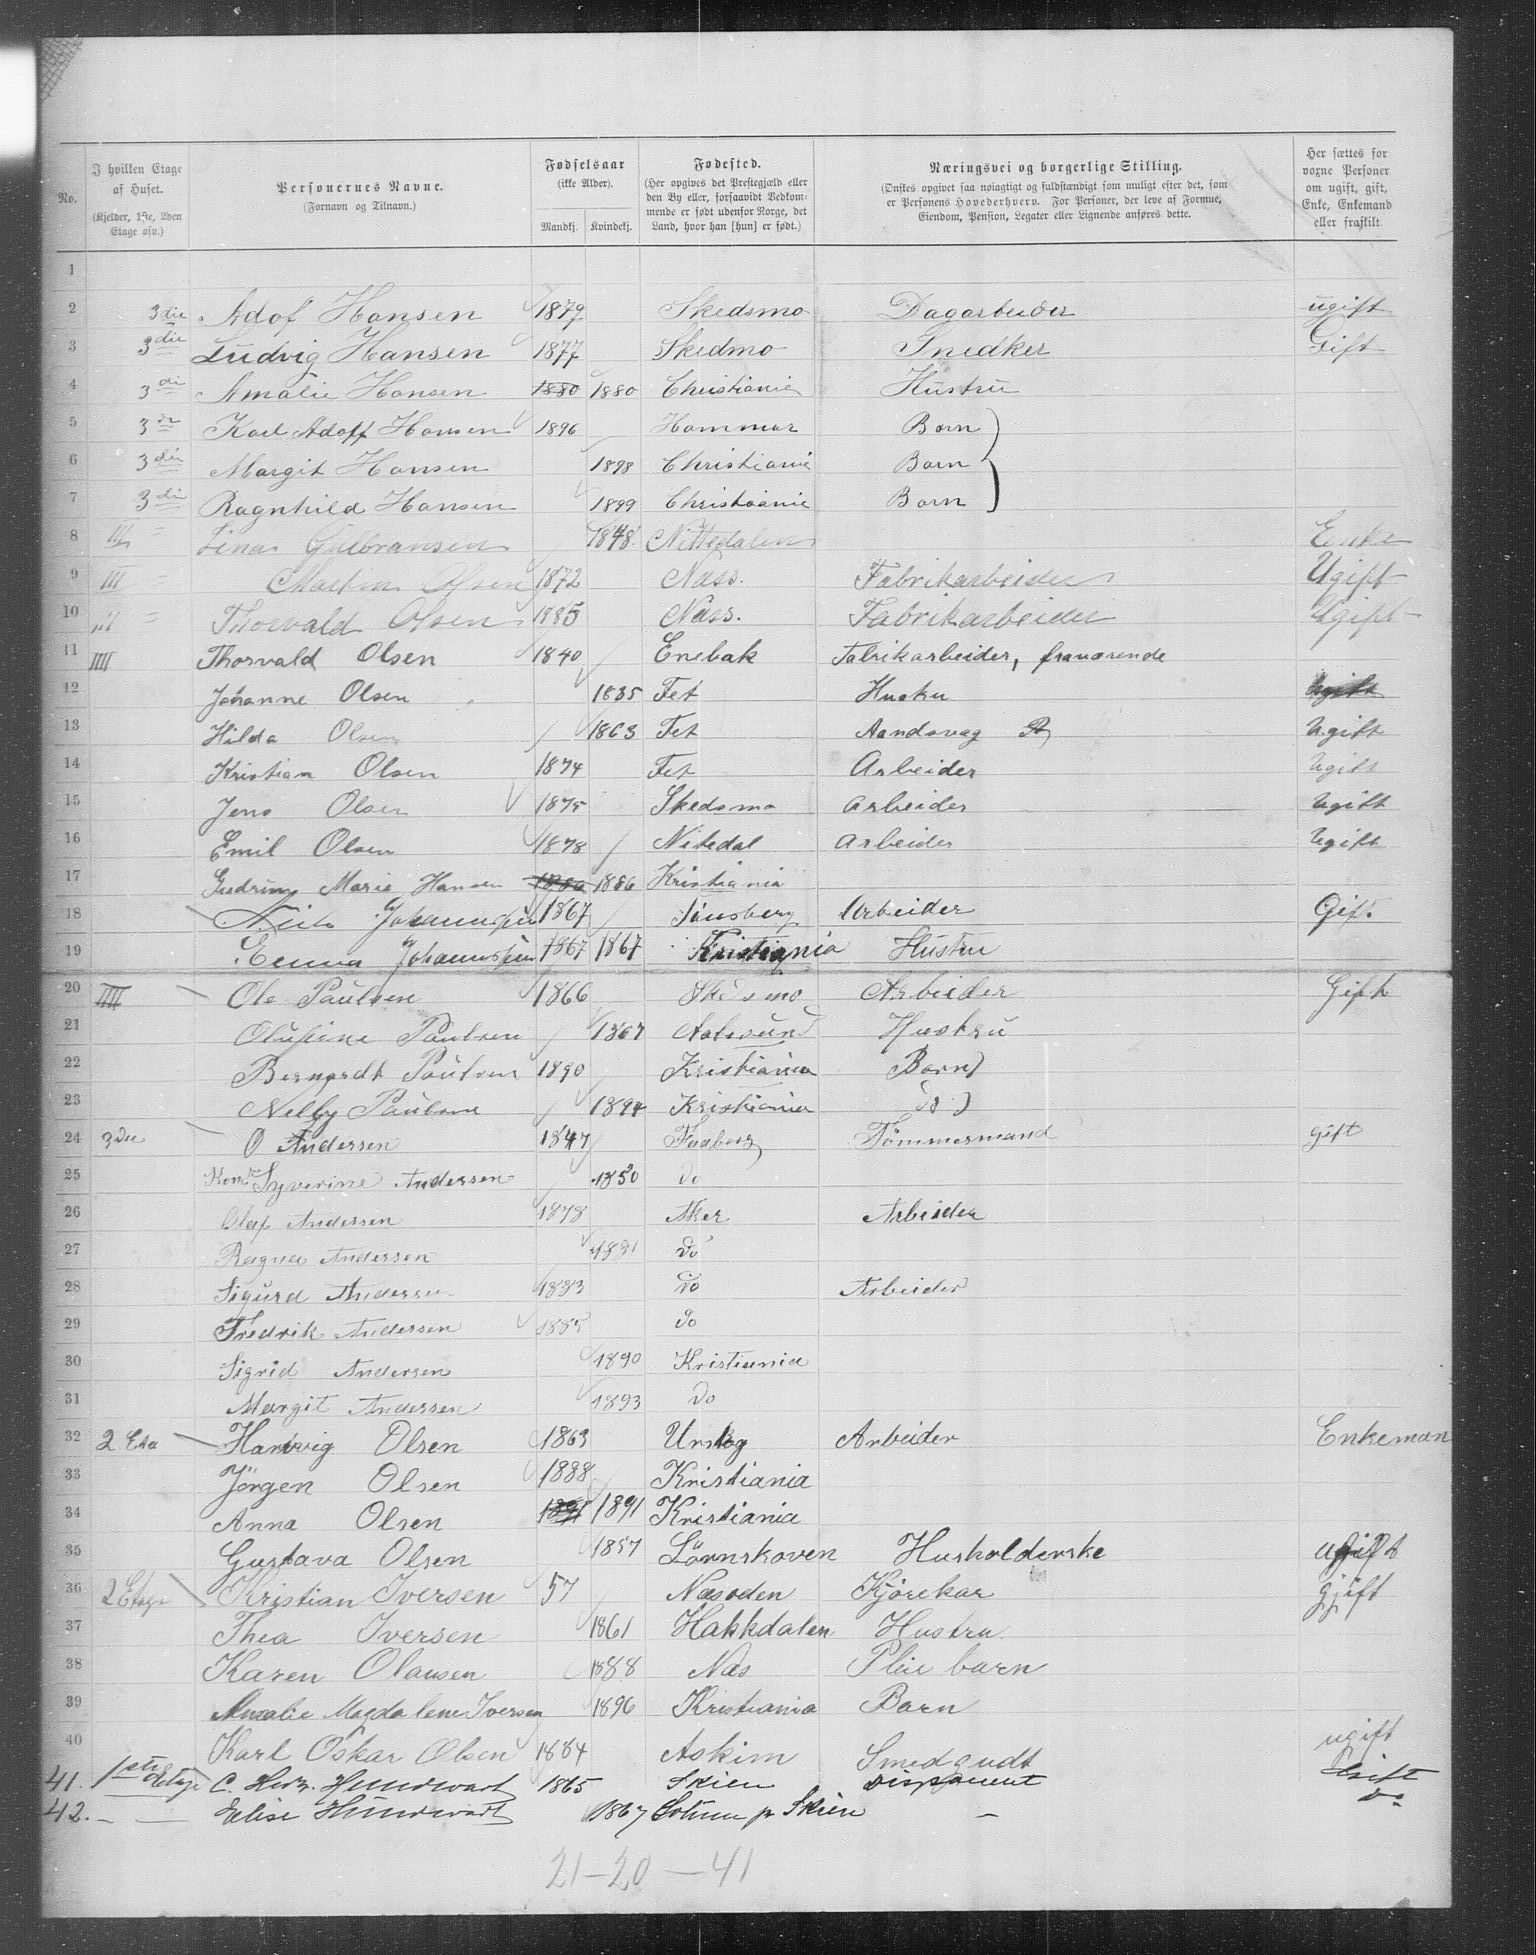 No.
I hvilken Etage af Huset. (Kjelder, 1ste, 2den Etage osv.)
Personernes Navne. (Fornavn og Tilnavn.)
Fødselsaar (ikke Alder). Mandkj. Kvindekj.
Fødested. (Her opgives det Prestegjæld eller den By eller, forsaavidt Vedkommende er født udenfor Norge, det Land, hvor han [hun] er født.)
Næringsvei og borgerlige Stilling. (Ønskes opgivet saa nøiagtigt og fuldstændigt som muligt efter det, som er Personens Hovederhverv. For Personer, der leve af Formue, Eiendom, Pension, Legater eller Lignende anføres dette.
Her sættes for voxne Personer om ugift, gift, Enke, Enkemand eller fraskilt
1
2 3die Adof Hansen 1879 Skedsmo Dagarbeider ugift
3 3die Ludvig Hansen 1877 Skedmo Snedker Gift
4 3die Amalie Hansen 1880 1880 Christiania Hustru
5 3die Karl Adoff Hansen 1896 Hammar Barn
6 3die Margit Hansen 1898 Christiania Barn
7 3die Ragnhild Hansen 1899 Christiania Barn
8 III Lina Gulbransen 1848 Nittedalen Enke
9 III Martin Olsen 1872 Næss. Fabrikarbeider Ugift
10 III Thorvald Olsen 1885 Næss. Fabrikarbeider Ugift
11 IIII Thorvald Olsen 1840 Enebak Fabrikarbeider, fraværende
12 Johanne Olsen 1835 Fet Hustru
13 Hilda Olsen 1863 Fet Aandsvag Ugift
14 Kristian Olsen 1874 Fet Arbeider Ugift
15 Jens Olsen 1875 Skedsmo Arbeider Ugift
16 Emil Olsen 1878 Nitedal Arbeider Ugift
17 Gudruny Marie Hansen 1886 Kristiania
18 Johannsen 1867 Tønsberg Arbeider Gift
19 Emma Johannsen 1867 1867 Kristiania Hustru
20 IIII Ole Paulsen 1866 Skedsmo Arbeider Gift
21 Paulsen 1867 Aalesund Hustru
22 Bernardt Paulsen 1890 Kristiania Barn
23 Nelly Paulsen 1894 Kristiania do
24 3die O Andersen 1847 Tømmermand gift
25 Syverine Andersen 1850 do
26 Olaf Andersen 1878 Aker Arbeider
27 Ragna Andersen 1881 Do
28 Sigurd Andersen 1883 Do Arbeider
29 Fredrik Andersen 1885 do
30 Sigrid Andersen 1890 Kristiania
31 Margit Andersen 1893 Do
32 2 Eta Hartvig Olsen 1863 Urskog Arbeider Enkeman
33 Jörgen Olsen 1888 Kristiania
34 Anna Olsen 1891 1891 Kristiania
35 Gustava Olsen 1857 Lørnskoven Husholderske ugift
36 2 Etage Kristian Iversen 57 Næsoden Kjörekar gjift
37 Thea Iversen 1861 Hakkdalen Hustru
38 Karen Olausen 1888 Næs Pleie barn
39 Amalie Magdalene Iversen 1896 Kristiania Barn
40 Karl Oskar Olsen 1884 Askim Smedgudt ugift
41. 1ste Etage C. Hundwart 1865 Skien Disponent Gift
42. — — Elise Hundwart 1867 Solum pr Skien — Do
21—20—41